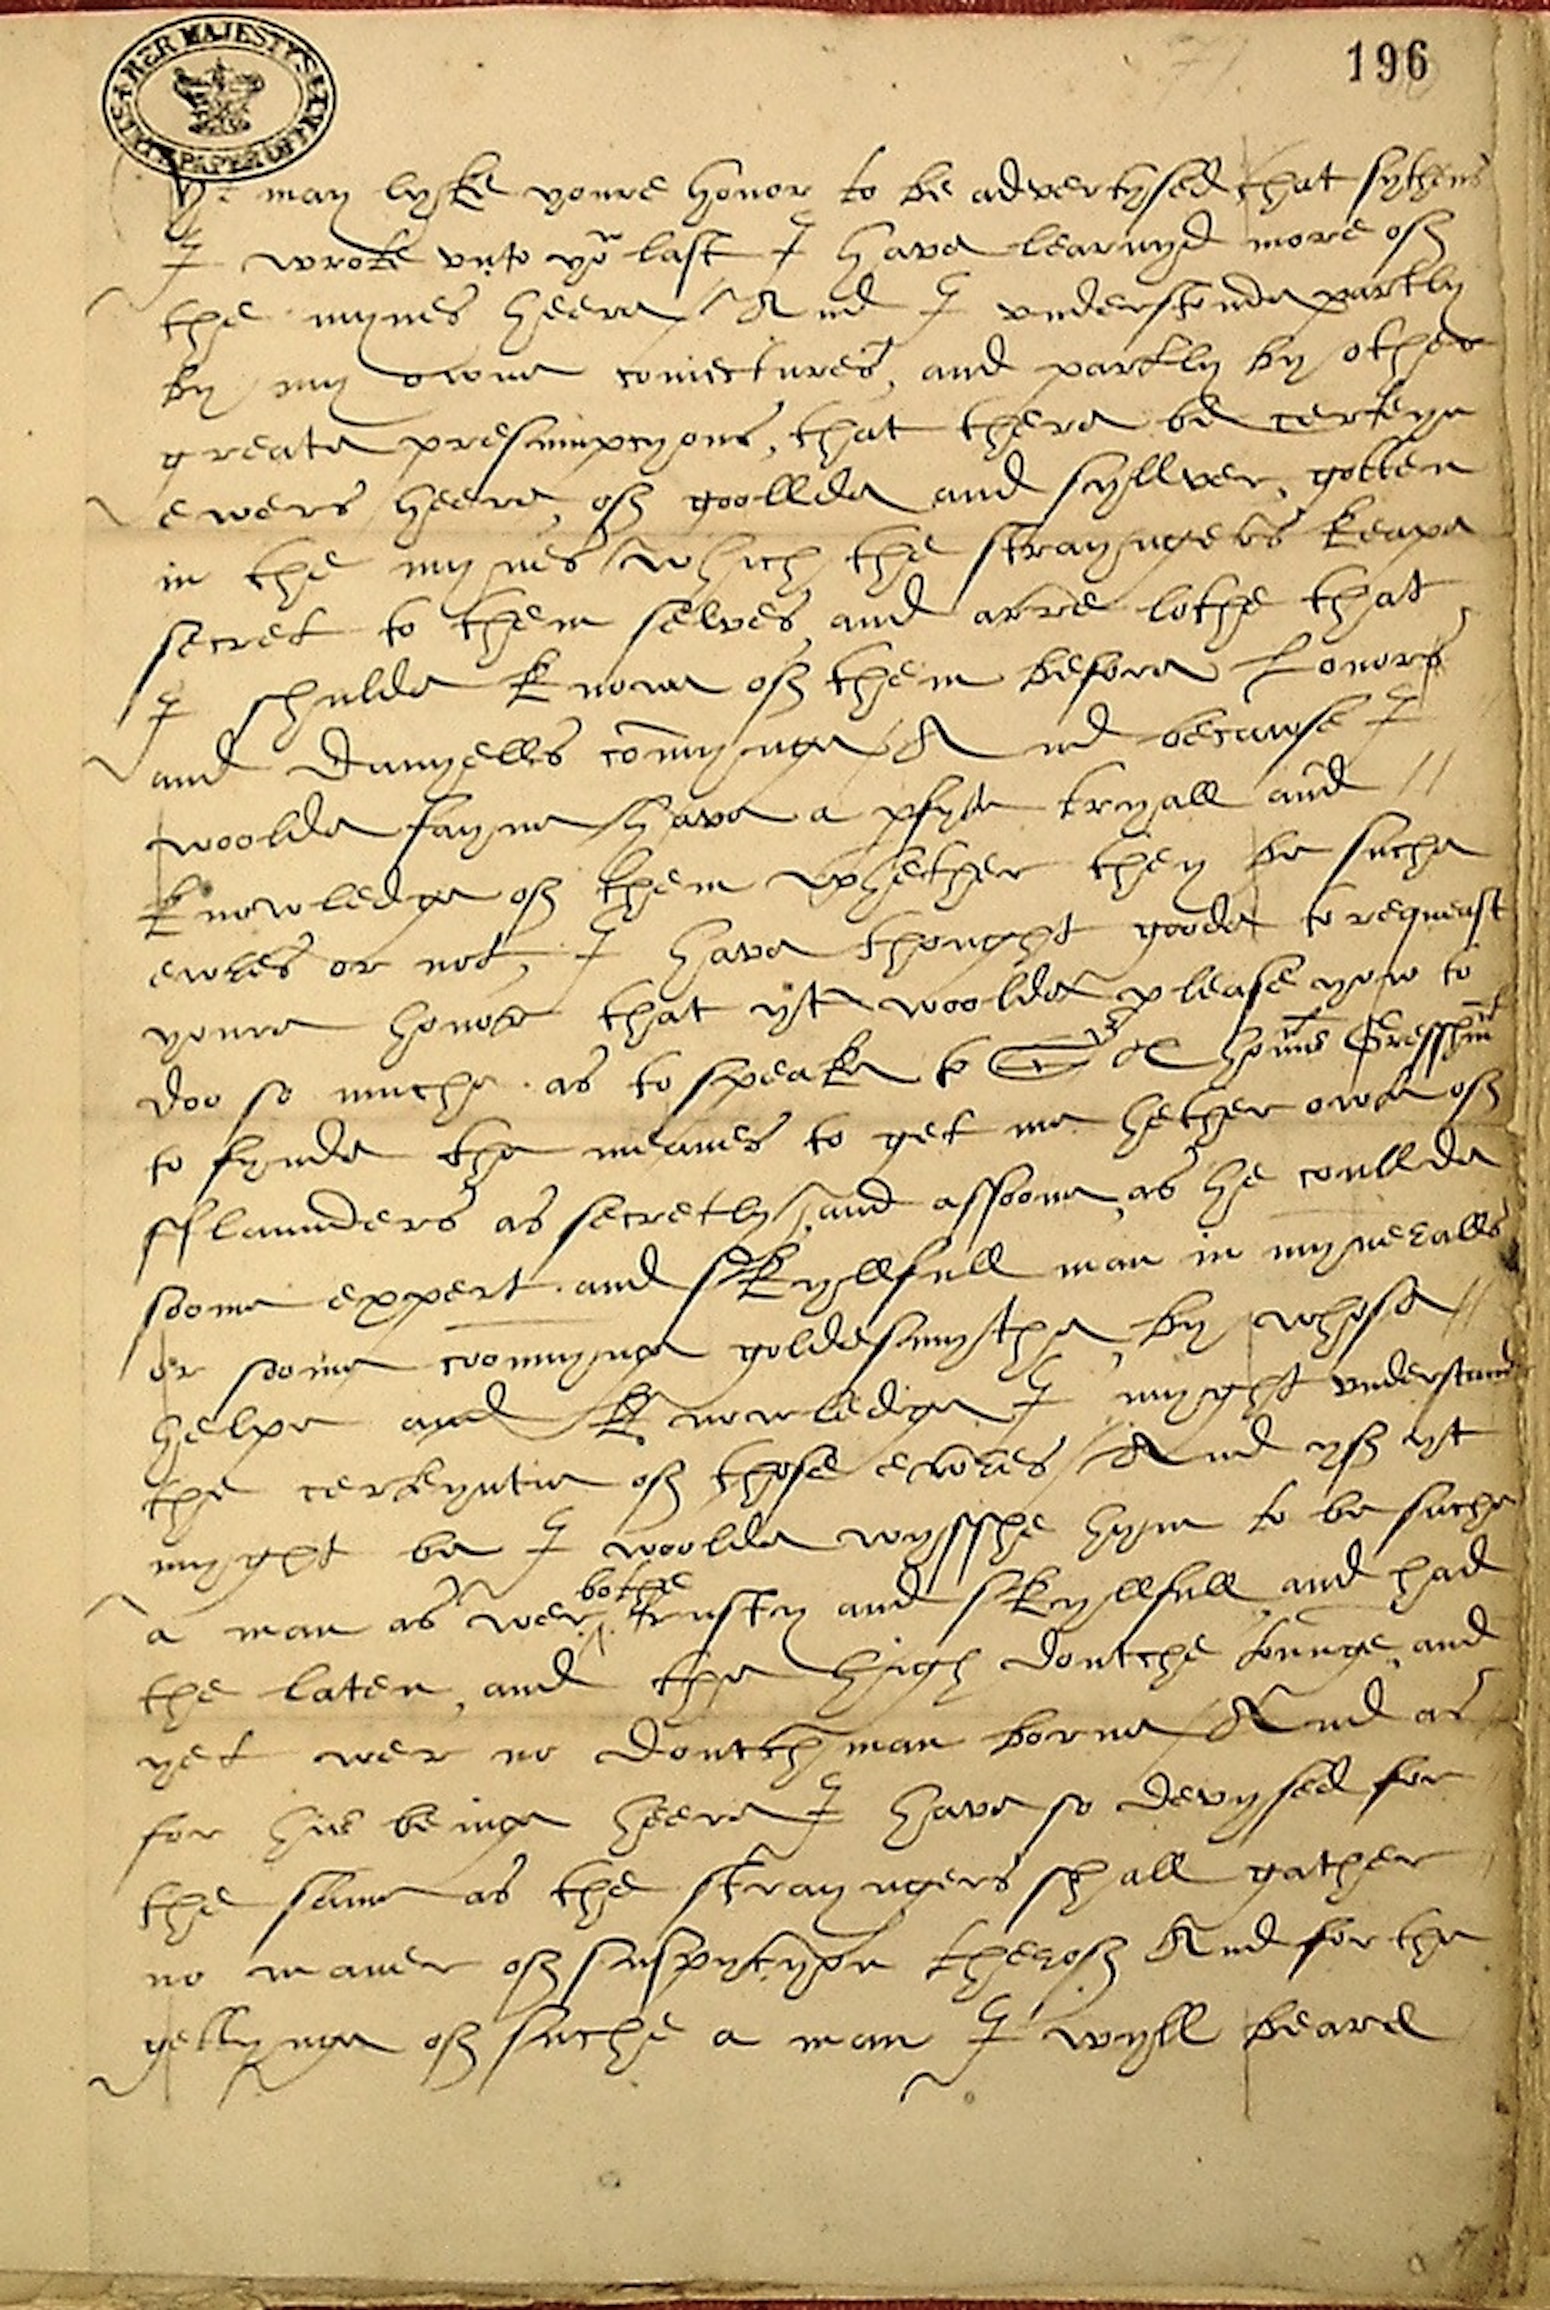 HER MAJESTY'S STATE PAPER OFFICE
196
Yt may lyke youre honor to be advertysed that sythens
I wrote vnto yor last I have learnyd more off
the mynes heere / And I vnderstonde partly
by my owne coniectures, and partly by other
greate presumpcyons, that there be certeyn
ewers heere, off goollde and syllver, gotten
in the mynes which the strayngers keape
secret to them selves, and arre lothe that
I shulde knowe off them before Lonors
and Danyells comynge / And becawse I
woolde fayne have a pfyte tryall and //
knowledge off them whether they be suche
ewres or not, I have thought goode to requeast
youre honor that yt woolde please yow to
doo so muche as to speake to Sr Thoms Gressham
to fynde the meanes to get me hether owte off
fflaunders as secretly, and assoone, as he coullde
soome expert and skyllfull man in myneralls
or soome coonnynge goldesmythe, by whose //
helpe and knowledge I myght vnderstand
the certeyntie off those ewres / And yff yt
myght be I woolde wysshe hym to be suche
a man as wer bothe trusty and skyllfull, and had
the laten, and the high doutche tounge, and
yet wer no doutch man borne / And as
for his beinge heere I have so devysed for
the same as the strayngers shall gather
no maner off suspycyon theroff And for the
gettynge off suche a man I wyll beare